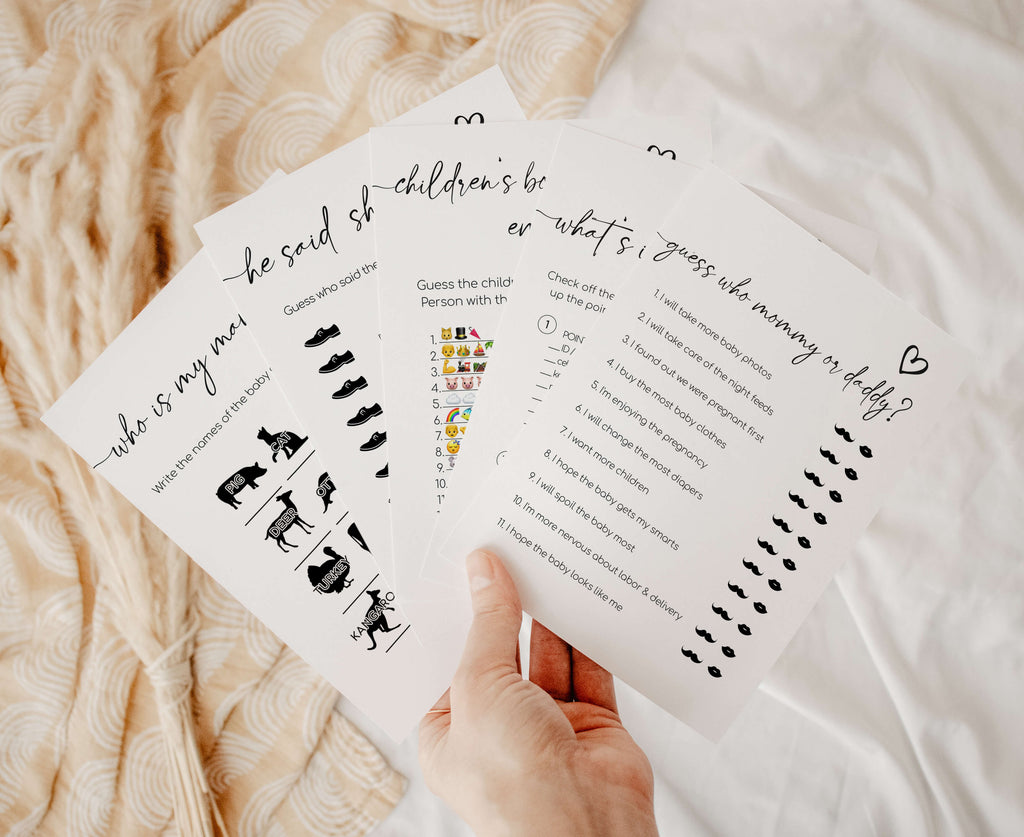 who is my mo
Write the names of the baby
CAT
PIG
OTT
DEER
TURKEY
KANGARO
he said sh
Guess who said the
children's bo
em
Guess the child
Person with th
1.
2.
3.
4.
5.
6.
7.
8.
9.
10.
11
what's i
Check off the
up the poin
1
POIN
ID /
guess who mommy or daddy?
1. I will take more baby photos
2. I will take care of the night feeds
3. I found out we were pregnant first
4. I buy the most baby clothes
5. I'm enjoying the pregnancy
6. I will change the most diapers
7. I want more children
8. I hope the baby gets my smarts
9. I will spoil the baby most
10. I'm more nervous about labor & delivery
11. I hope the baby looks like me